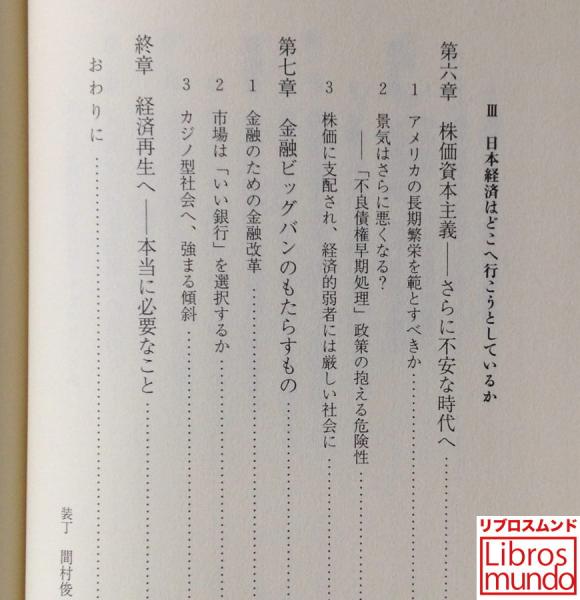 Ⅲ 日本経済はどこへ行こうとしているか
第六章 株価資本主義――さらに不安な時代へ
1 アメリカの長期繁栄を範とすべきか
2 景気はさらに悪くなる？
――「不良債権早期処理」政策の抱える危険性
3 株価に支配され、経済的弱者には厳しい社会に
第七章 金融ビッグバンのもたらすもの
1 金融のための金融改革
2 市場は「いい銀行」を選択するか
3 カジノ型社会へ、強まる傾斜
終章 経済再生へ――本当に必要なこと
おわりに
装丁 間村俊
リブロスムンド
Libros
mundo